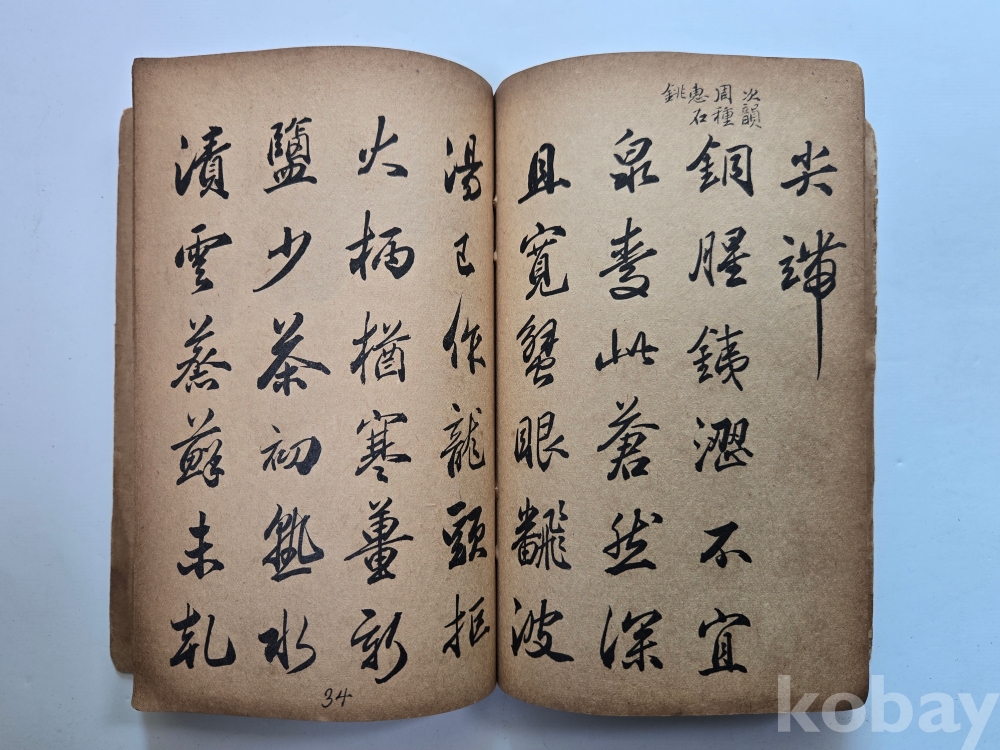 次韻
周種
惠石
銚
尖端
銅腥銕澀不宜
泉愛此蒼然深
且寬蟹眼飜波
湯已作龍頭拒
火柄猶寒薑新
鹽少茶初熟水
漬雲蒸蘚未乾
34
kobay